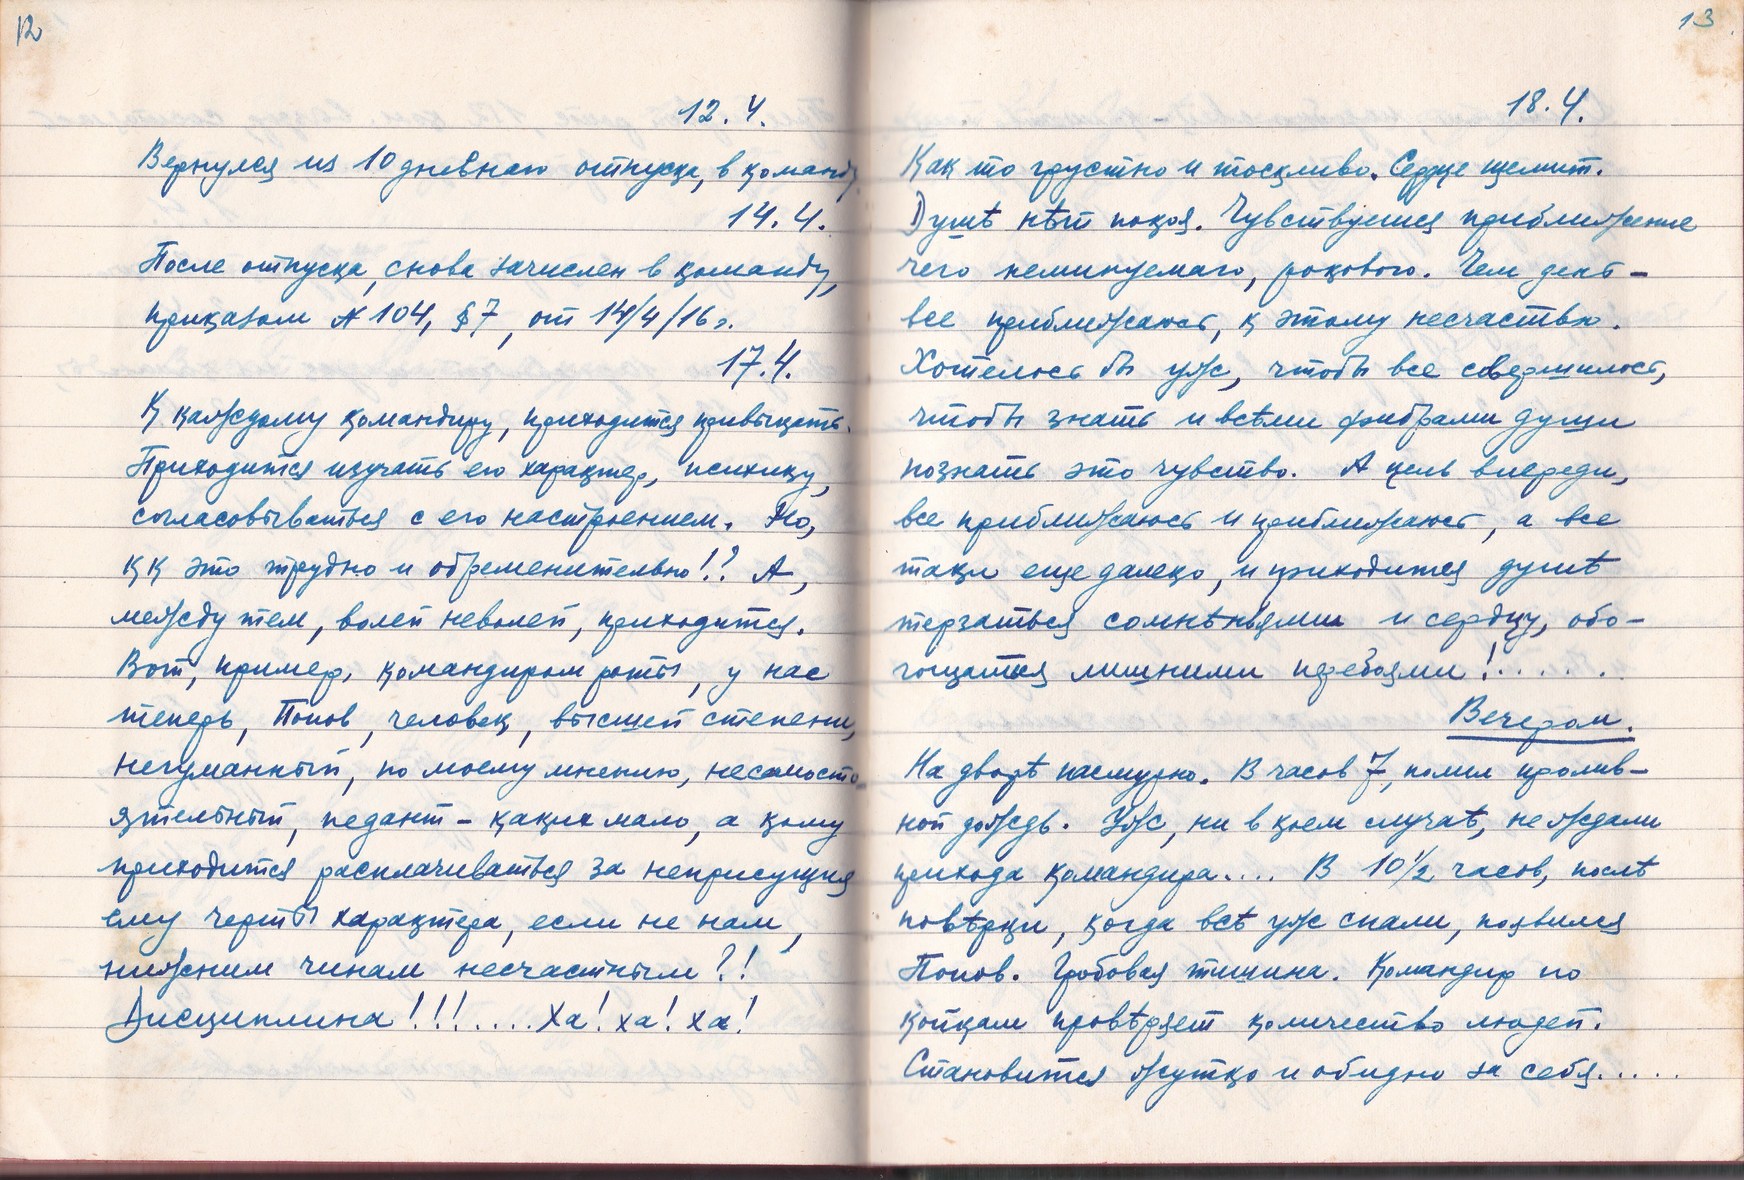 12
12.4.
Вернулся из 10 дневнаго отпуска, в команду.
14.4.
После отпуска, снова зачислен в команду,
приказом № 104, § 7, от 14/4/16 г.
17.4.
К каждому командиру, приходится привыкать.
Приходится изучать его характер, психику,
согласовываться с его настроением. Но,
как это трудно и обременительно!? А,
между тем, волей неволей, приходится.
Вот, пример, командиром роты, у нас
теперь, Попов, человек, высшей степени,
негуманный, по моему мнению, несамосто
ятельный, педант – каких мало, а кому
приходится расплачиваться за неприсущия
ему черты характера, если не нам,
нижним чинам несчастным?!
Дисциплина!!!..... Ха! ха! ха!
13
18.4.
Как то грустно и тоскливо. Сердце щемит.
Душѣ нѣт покоя. Чувствуется приближение
чего неминуемаго, рокового. Чем дент –
все приближаюсь, к этому несчастью.
Хотелось бы уж, чтобы все совершилось,
чтобы знать и всѣми фибрами души
познать это чувство. А цель впереди,
все приближаюсь и приближаюсь, а все
таки еще далеко, и приходится душѣ
терзаться сомнѣньями и сердцу, обо-
гощаться лишними перебоями!.....
Вечером.
На дворѣ пасмурно. В часов 7, полил пролив-
ной дождь. Уж, ни в коем случаѣ, не ждали
прихода командира.... В 10 1/2 часов, послѣ
повѣрки, когда всѣ уж спали, появился
Попов. Гробовая тишина. Командир по
койкам провѣряет количество людей.
Становится жутко и обидно за себя.....